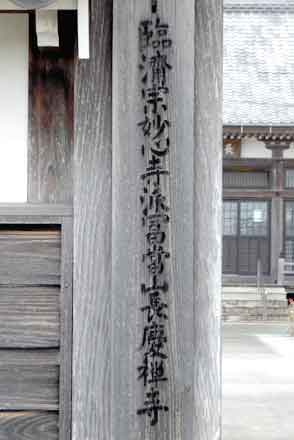 臨濟宗妙心寺派冨嵩山長慶禅寺